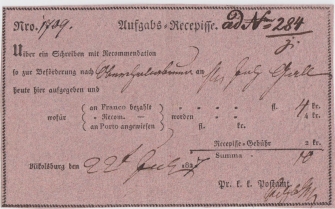 Nro. 1709. Aufgabs-Recepisse. ad No 284
Über ein Schreiben mit Recommendation
so zur Beförderung nach an
heute hier aufgegeben und
an Franco bezahlt fl. 4 kr.
wofür „ Recom. — werden „ 4 kr.
an Porto angewiesen fl. kr.
Recepisse-Gebühr 2 kr.
Summa 10
Nikolsburg den 22t July 1827
Pr. k. k. Postamt.